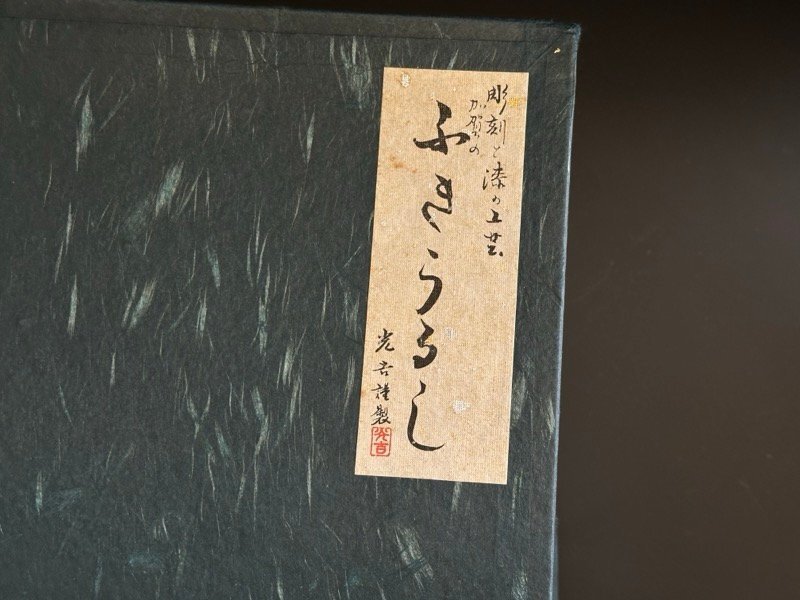 彫刻と漆の工芸
加賀の
ふきうるし
光吉謹製
光吉